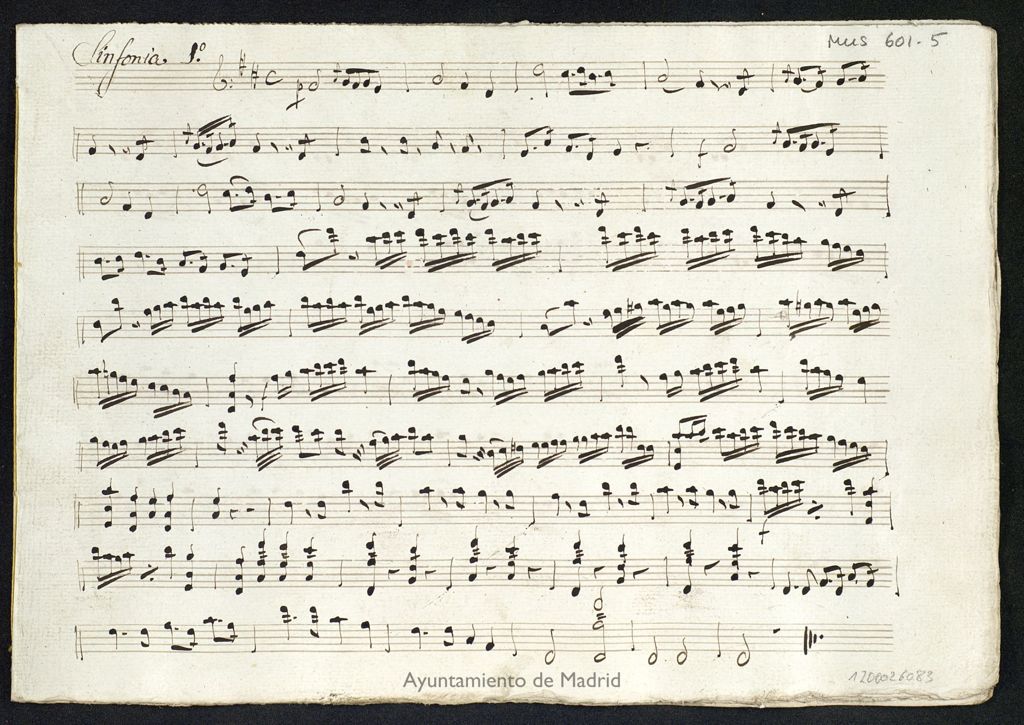 Sinfonia 1º
Mus 601-5
p
f
f
f
Ayuntamiento de Madrid
1200026083